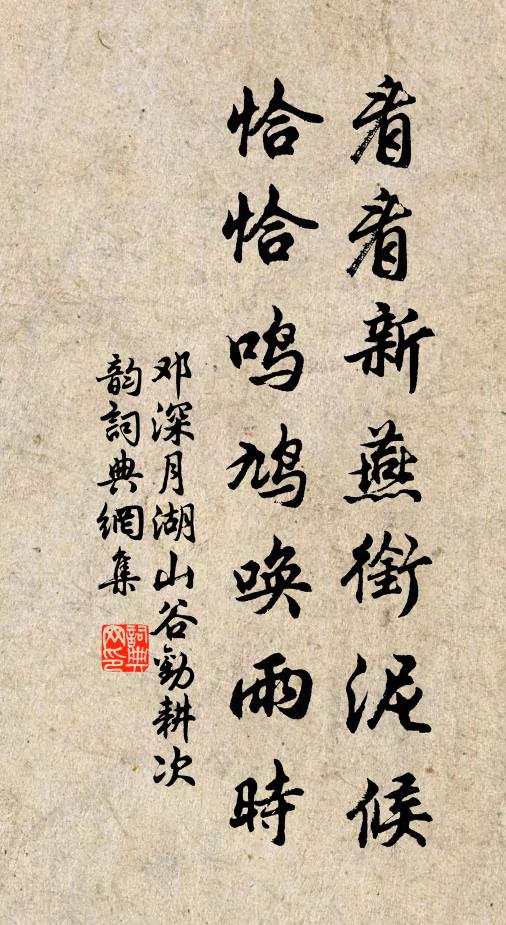 看看新燕銜泥候
恰恰鳴鳩喚雨時
邓深月湖山谷勸耕次
韵詞典網集
詞典网印